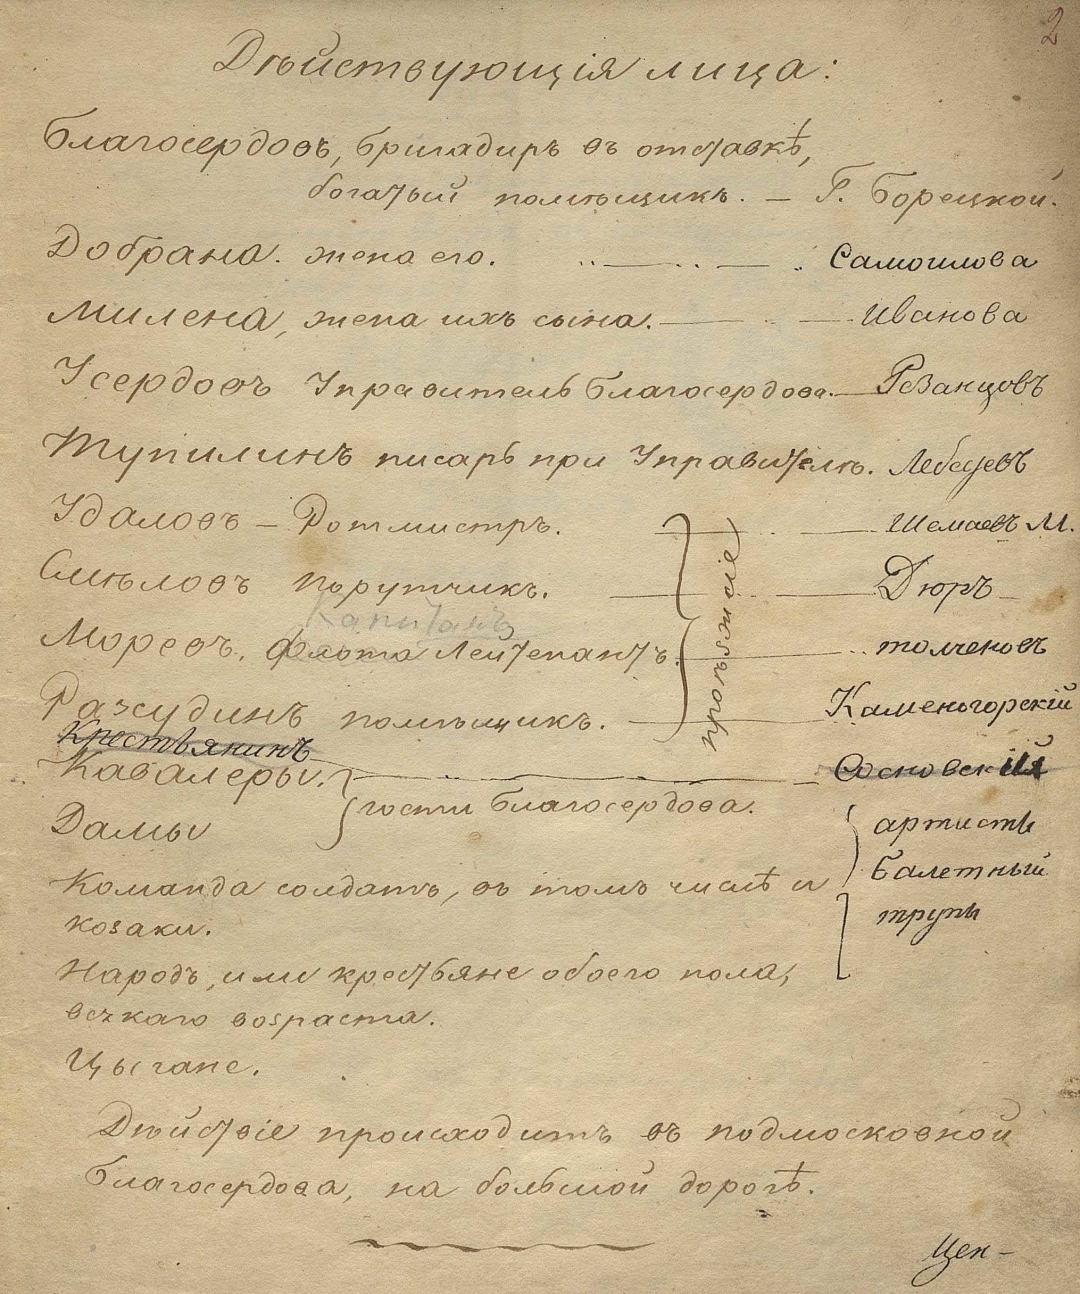 2
Дѣйствующія лица:
Благосердовъ, бригадиръ въ отставкѣ,
богатый помѣщикъ. — Г. Борецкой.
Добрана. жена его. Самойлова
Милена, жена ихъ сына. — Иванова
Усердовъ Управитель Благосердова. — Рѣзанцовъ
Тупилинъ писарь при Управителѣ. Лебедевъ
Удаловъ — Ротмистръ. — Шемаевъ М.
Смѣловъ Порутчикъ. — Дюръ
Капитанъ
Моревъ. флота Лейтенантъ. — толченовъ
проѣзжіе
Разсудинъ помѣщикъ. — Каменогорскій
Крестьянинъ
Кавалеры. — Сосновскій
гости Благосердова.
Дамы артисты
Балетный
Команда солдатъ, въ томъ числѣ и
козаки. трупы
Народъ, или крестьяне обоего пола,
всякаго возраста.
Цыгане.
Дѣйствіе происходитъ въ подмосковной
Благосердова, на большой дорогѣ.
Цен-